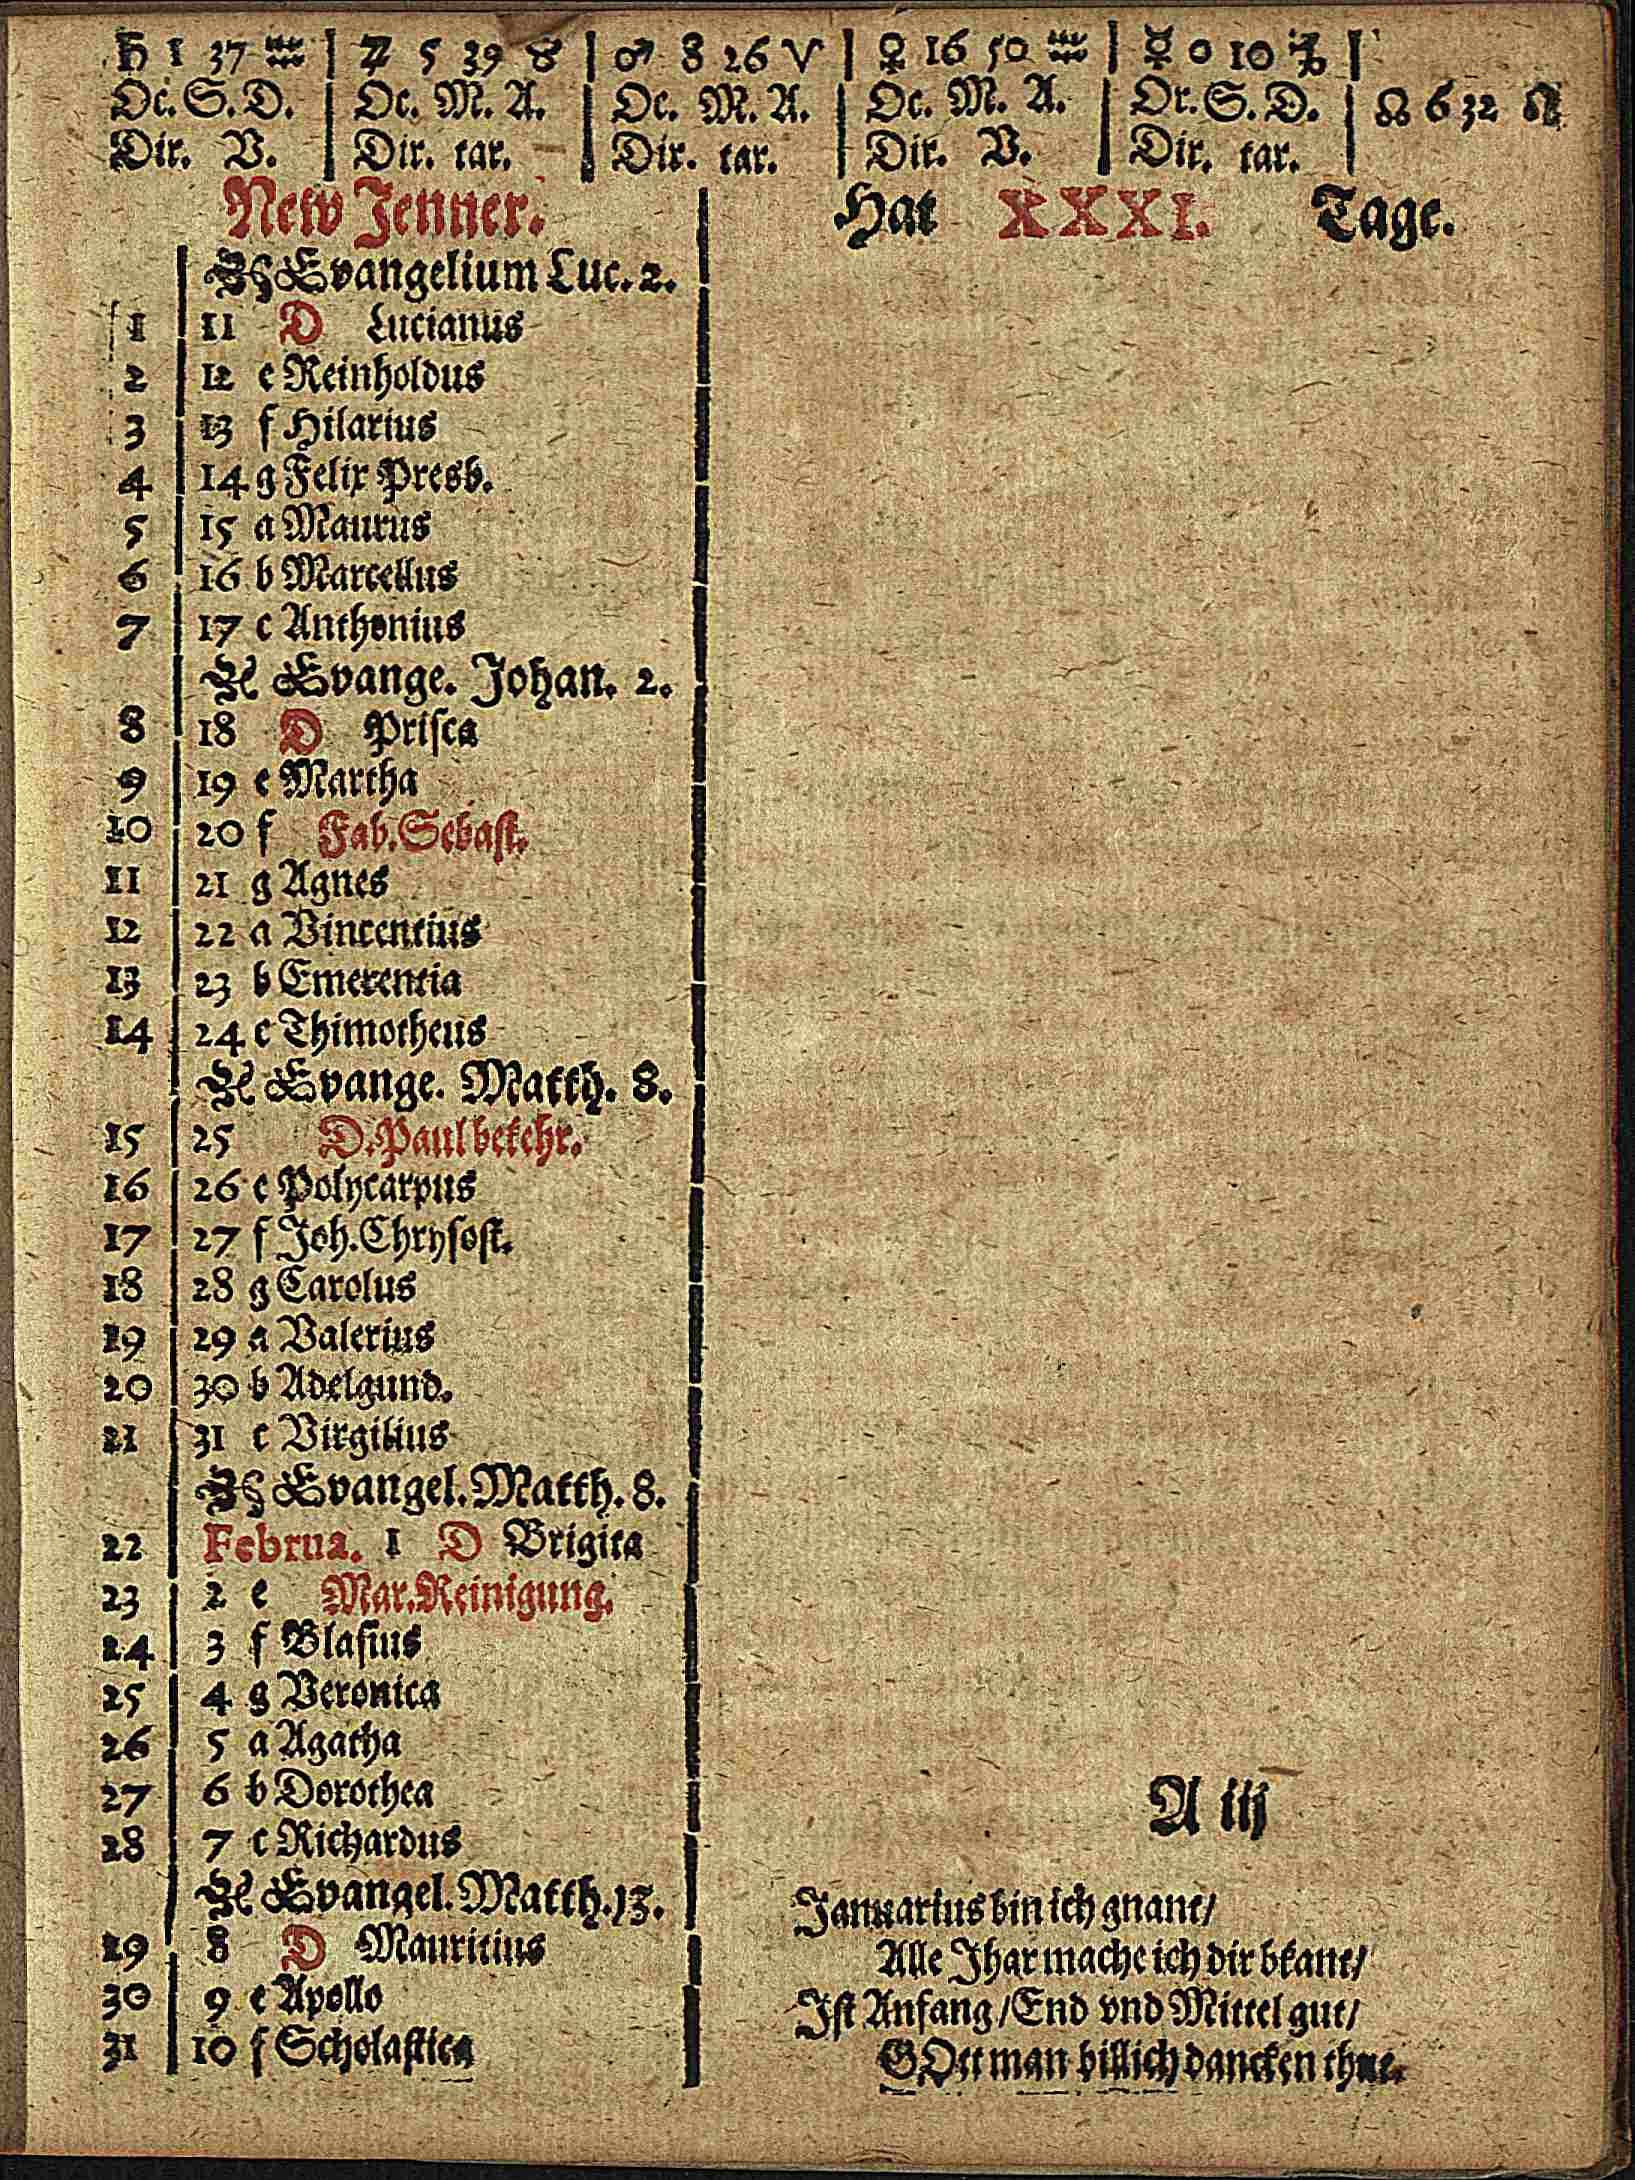 ♄ 1 37 ♒ | ♃ 5 39 ♉ | ♂ 8 26 ♈ | ♀ 16 50 ♒ | ☿ 0 10 ♑ |
Oc. S. D. | Oc. M. A. | Oc. M. A. | Oc. M. A. | Or. S. D. | ☊ 6 32 ♌
Dir. V. | Dir. tar. | Dir. tar. | Dir. V. | Dir. tar. |
New Jenner. Hat XXXI. Tage.
Evangelium Luc. 2.
1 | 11 D Lucianus
2 | 12 e Reinholdus
3 | 13 f Hilarius
4 | 14 g Felix Presb.
5 | 15 a Maurus
6 | 16 b Marcellus
7 | 17 c Anthonius
N Evange. Johan. 2.
8 | 18 D Prisca
9 | 19 e Martha
10 | 20 f Fab. Sebast.
11 | 21 g Agnes
12 | 22 a Vincentius
13 | 23 b Emerentia
14 | 24 c Thimotheus
N Evange. Matth. 8.
15 | 25 D. Paul bekehr.
16 | 26 e Polycarpus
17 | 27 f Joh. Chrysost.
18 | 28 g Carolus
19 | 29 a Valerius
20 | 30 b Adelgund.
21 | 31 c Virgilius
Evangel. Matth. 8.
22 | Februa. 1 D Brigita
23 | 2 e Mar. Reinigung.
24 | 3 f Blasius
25 | 4 g Veronica
26 | 5 a Agatha
27 | 6 b Dorothea
28 | 7 c Richardus
N Evangel. Matth. 13.
29 | 8 D Mauritius
30 | 9 e Apollo
31 | 10 f Scholastica
A iij
Januarius bin ich gnant/
Alle Jhar mache ich dir bkant/
Ist Anfang/ End vnd Mittel gut/
GOtt man billich dancken thut.